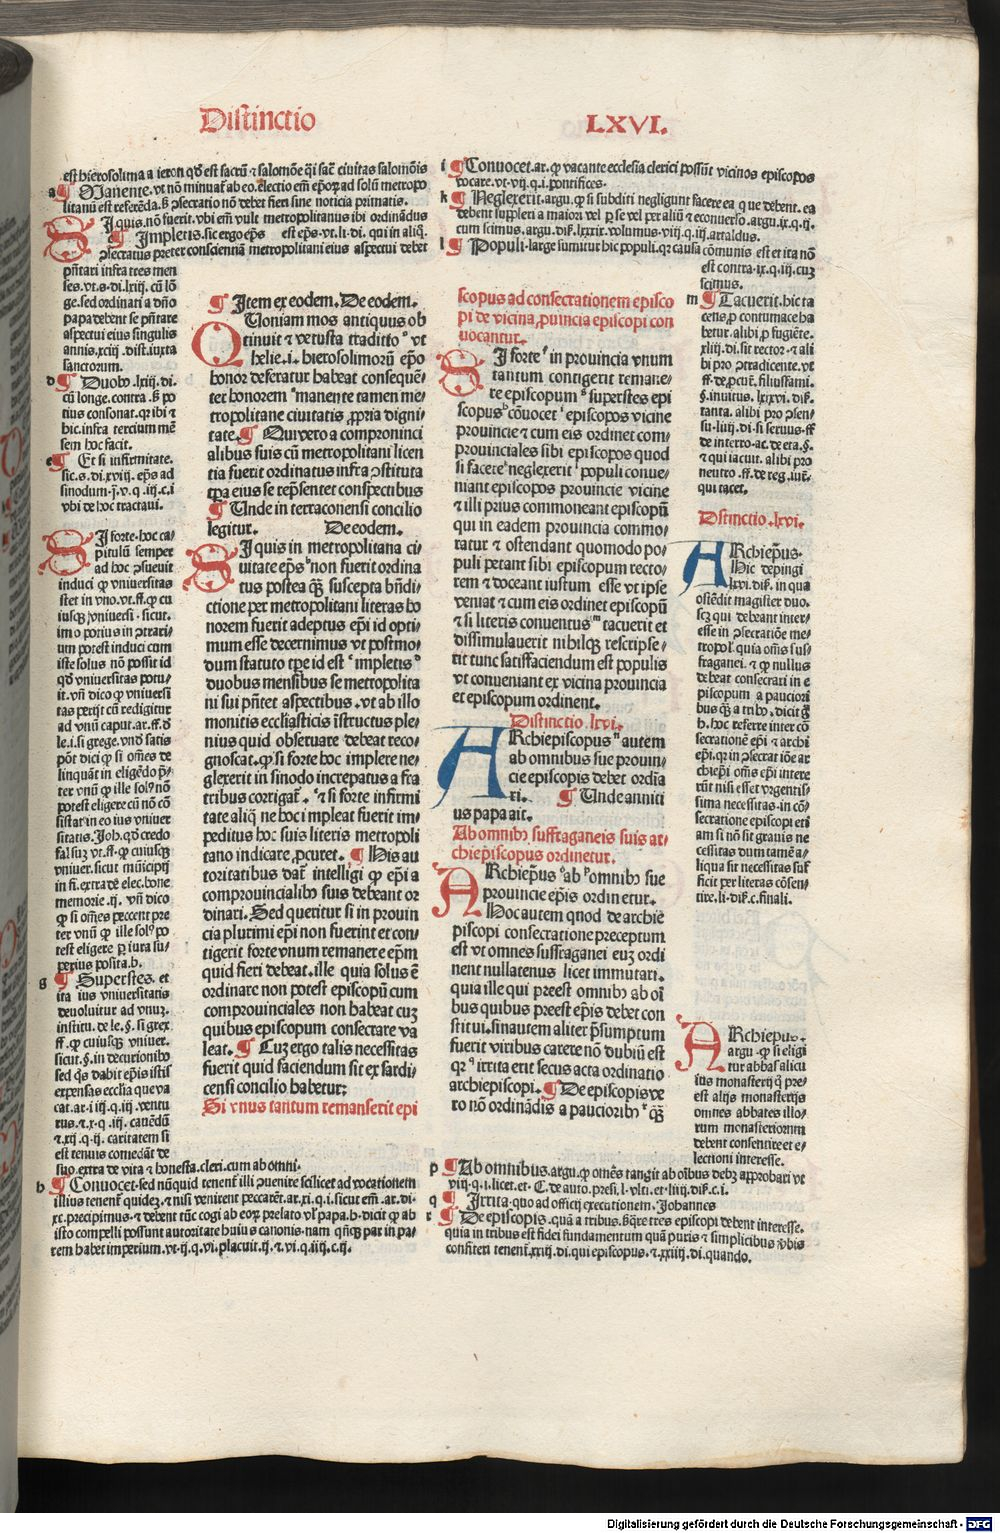 Distinctio LXVI.
est hierosolima a ieron qď est sacrū ⁊ salomōe q̈si sac̄ ciuitas salomōis
a ¶ Manente. vt nō minuat̄ ab eo. electio em̄ ep̄oꝝ ad solū metropo
litanū est referēda. ß ꝯsecratio nō debet fieri sine noticia primatis.
SI quis. nō fuerit. vbi em̄ vult metropolitanus ibi ordinādus
¶ Impletis. sic ergo ep̄s est ep̄s. vt. li. di. qui in aliq̄.
ꝯsecratus preter conscienciā metropolitani eius aspectui debet
pn̄tari infra tres men
ses. vt. s. di. lxiij. cū lō
ge. sed ordinati a dn̄o
papa debent se pn̄tare
aspectui eius singulis
annis. xciij. dist. iuxta
sanctorum.
d ¶ Duob. lxiij. di.
cū longe. contra. ß po
tius consonat. qꝛ ibi ⁊
hic. infra tercium mē
sem hoc facit.
e ¶ Et si infirmitate.
sic. s. di. xviij. ep̄s ad
sinodum. ⁊. v. q. iij. c. i
vbi de hoc tractaui.
SI forte. hoc ca
pitulū semper
ad hoc ꝯsueuit
induci ꝙ vniuersitas
stet in vno. vt. ff. ꝙ cu
iusqꝫ vniuersi. sicut.
imo potius in ꝯtrari
um potest induci cum
iste solus nō possit id
qď vniuersitas potu
it. vn̄ dico ꝙ vniuersi
tas perijt cū redigitur
ad vnū caput. ar. ff. ď
le. i. si grege. vnď satis
pōt dici ꝙ si om̄es de
linquāt in eligēdo p̄
ter vnū ꝙ ille solꝰ nō
potest eligere cū nō cō
sistat in eo ius vniuer
sitatis. Joh. qď credo
falsuꝫ vt. ff. ꝙ cuiusqꝫ
vniuer. sicut municipij
in fi. extra de elec. bone
memorie. ij. vn̄ dico
ꝙ si om̄es peccent pre
ter vnū ꝙ ille solꝰ po
test eligere ꝑ iura su
perius posita. b.
g ¶ Superstes. et
ita ius vniuersitatis
deuoluitur ad vnuꝫ.
institu. de le. §. si grex
ff. ꝙ cuiusqꝫ vniuer.
sicut. §. in decurionibꝰ
sed qͥs dabit ep̄is istis
expensas ecclia que va
cat. ar. i iij. q. iij. ventu
rus. ⁊. x. q. iij. cauēdū
⁊. xij. q. ij. caritatem si
est tenuis comedāt de
suo. extra de vita ⁊ honesta. cleri. cum ab omni.
h ¶ Conuocet. sed nūquid tenent̄ illi ꝯuenire scilicet ad vocationem
illius tenent̄ quideꝫ. ⁊ nisi venirent peccarēt. ar. xi. q. i. sicut em̄. ar. di.
xc. precipimus. ⁊ debent tūc cogi ab eoꝝ prelato vl̓ papa. h. dicit ꝙ ab
isto compelli possunt autoritate huiꝰ canonis. nam qn̄qꝫ par in pa
rem habet imperium. vt. ij. q. vi. placuit. ij. ⁊. vi. q. iiij. c. ij.
¶ Item ex eodem. De eodem.
QUoniam mos antiquus ob
tinuit ⁊ vetusta traditio ᵘ vt
helie. i. hierosolimorū ep̄o
honor deferatur habeat consequē
ter honorem ᵃ manente tamen me
tropolitane ciuitatis ꝓpria digni
tate. ¶ Qui vero a comprouinci
alibus suis cū metropolitani licen
tia fuerit ordinatus infra ꝯstituta
tp̄ra eius se rep̄sentet conspectibus
¶ Unde in terraconensi concilio
legitur. De eodem.
SI quis in metropolitana ci
uitate ep̄s ᵃ non fuerit ordina
tus postea qͣꝫ suscepta bn̄di
ctione per metropolitani literas ho
norem fuerit adeptus ep̄i id opti
mum esse decernimus vt postmo
dum statuto tp̄e id est ᶜ impletis ᵈ
duobus mensibus se metropolita
ni sui pn̄tet aspectibus. vt ab illo
monitis ecclīasticis īstructus ple
nius quid obseruare debeat reco
gnoscat. ꝙ si forte hoc implere ne
glexerit in sinodo increpatus a fra
tribus corrigat̄. ᵉ ⁊ si forte infirmi
tate aliq̄ ne hoc impleat fuerit im
peditus hoc suis literis metropoli
tano indicare ꝓcuret. ¶ His au
toritatibus dat̄ intelligi ꝙ ep̄i a
comprouincialibꝰ suis debeant or
dinari. Sed queritur si in prouin
cia plurimi ep̄i non fuerint et con
tigerit forte vnum remanere ep̄m
quid fieri debeat. ille quia solus ē
ordinare non potest episcopū cum
comprouinciales non habeat cuꝫ
quibus episcopum consecrare va
leat. ¶ Cuꝫ ergo talis necessitas
fuerit quid faciendum sit ex sardi
censi concilio habetur:
Si vnus tantum remanserit epi
i ¶ Conuocet. ar. ꝙ vacante ecclesia clerici possūt vicinos episcopos
vocare. vt. vij. q. i. pontifices.
k ¶ Neglexerit. argu. ꝙ si subditi negligunt facere ea que debent. ea
debent suppleri a maiori vel ꝑ se vel per aliū ⁊ econuerso. argu. ix. q. ij.
cum scimus. argu. dis̄. lxxix. volumus. viij. q. iij. artaldus.
l ¶ Populi. large sumitur hic populi. qꝛ causa cōmunis est et ita nō
est contra. ix. q. iij. cuꝫ
scimus.
scopus ad consecrationem episco
pi de vicina ꝓuincia episcopi con
uocantur.
SI forte ᶠ in prouincia vnum
tantum contigerit remane
re episcopum ᵍ superstes epi
scopus ʰ cōuocet ⁱ episcopos vicine
prouincie ⁊ cum eis ordinet com
prouinciales sibi episcopos quod
si facere ᵏ neglexerit ˡ populi conue
niant episcopos prouincie vicine
⁊ illi prius commoneant episcopū
qui in eadem prouincia commo
ratur ⁊ ostendant quomodo po
puli petant sibi episcopum recto
rem ⁊ doceant iustum esse vt ipse
veniat ⁊ cum eis ordinet episcopū
⁊ si literis conuentus ᵐ tacuerit et
dissimulauerit nihilqꝫ rescripse
rit tunc satisfaciendum est populis
vt conueniant ex vicina prouincia
et episcopum ordinent.
Distinctio. lxvi.
ARchiepiscopus ⁿ autem
ab omnibus sue prouin
cie episcopis debet ordīa
ri. ¶ Unde anniti
us papa ait.
Ab omnibꝰ suffraganeis suis ar
chiepiscopus ordinetur.
ARchiep̄us ᵒ ab ᵖ omnibꝰ sue
prouincie ep̄is ordinetur.
Hoc autem quod de archie
piscopi consecratione preceptum
est vt omnes suffraganei euꝫ ordi
nent nullatenus licet immutari.
quia ille qui preest omnibꝰ ab oī
bus quibus preest ep̄is debet con
stitui. sin autem aliter p̄sumptum
fuerit viribus carere nō dubiū est
qꝛ ᑫ irrita erit secus acta ordinatio
archiepiscopi. ¶ De episcopis ve
ro nō ordinādis a paucioribꝰ ʳ qͣꝫ
m ¶ Tacuerit. hic ta
cens ꝑ contumace ha
betur. alibi ꝓ fugiēte.
xliij. di. sit rector. ⁊ ali
bi pro ꝯtradicente. vt
ff. de ꝓcur̄. filiusfami.
§. inuitus. lxxvi. dis̄.
tanta. alibi pro ꝯsen
su. liiij. di. si seruus. ff
de interro. ac. de eta. §.
⁊ qui tacuit. alibi pro
neutro. ff. de reg. iur̄.
qui tacet.
Dstinctio. lxvi.
ARchiep̄us.
Hic depingi
lxvi. dis̄. in qua
ostēdit magister duo.
scꝫ qui debeant inter
esse in ꝯsecratiōe me
tropol̓. quia om̄s suf
fraganei. ⁊ ꝙ nullus
debeat consecrari in e
piscopum a pauciori
bus qͣꝫ a tribꝰ. dicit g̊
h. hoc referre inter cō
secrationē ep̄i ⁊ archi
ep̄i. qꝛ in ꝯsecratiōe ar
chiep̄i om̄s ep̄i intere
runt nisi esset vrgentis
sima necessitas. in cō
secratione episcopi eti
am si nō sit grauis ne
cessitas dum tamē a
liqua sit necessitas suf
ficit per literas cōsen
tire. li. dis̄. c. finali.
ARchiepus.
argu. ꝙ si eligi
tur abbas alicu
ius monasterij q̄ pre
est alijs monasterijs
omnes abbates illo
rum monasteriorum
debent consentire et e
lectioni interesse.
p ¶ Ab omnibus. argu. ꝙ om̄es tangit ab oībus debꝫ approbari vt
viij. q. i. licet. et. C. de auto. presi. l. vlti. et. liiij. dis̄. c. i.
q ¶ Irrita. quo ad officij executionem. Johannes
r ¶ De episcopis. quā a tribus. ßq̄re tres episcopi debent interesse.
quia in tribus est fidei fundamentum quā puris ⁊ simplicibus ṽbis
confiteri tenent̄. xxiij. di. qui episcopus. ⁊. xxiiij. di. quando.
Digitalisierung gefördert durch die Deutsche Forschungsgemeinschaft - DFG